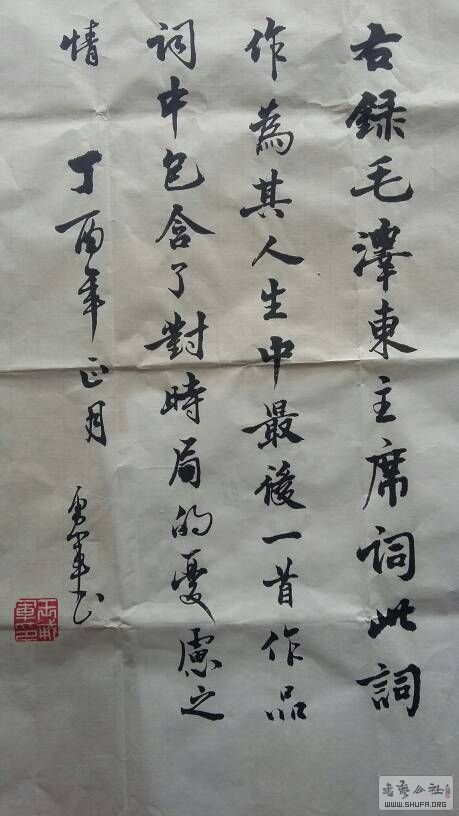 右録毛澤東主席詞此詞
作為其人生中最後一首作品
詞中包含了對時局的憂慮之
情 丁酉年正月
书艺公社
WWW.SHUFA.ORG